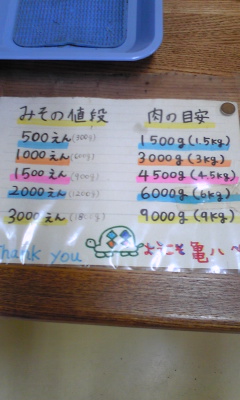 みその値段 肉の目安
500えん(300g) 1500g(1.5kg)
1000えん(600g) 3000g(3kg)
1500えん(900g) 4500g(4.5kg)
2000えん(1200g) 6000g(6kg)
3000えん(1800g) 9000g(9kg)
Thank you ようこそ 亀八へ